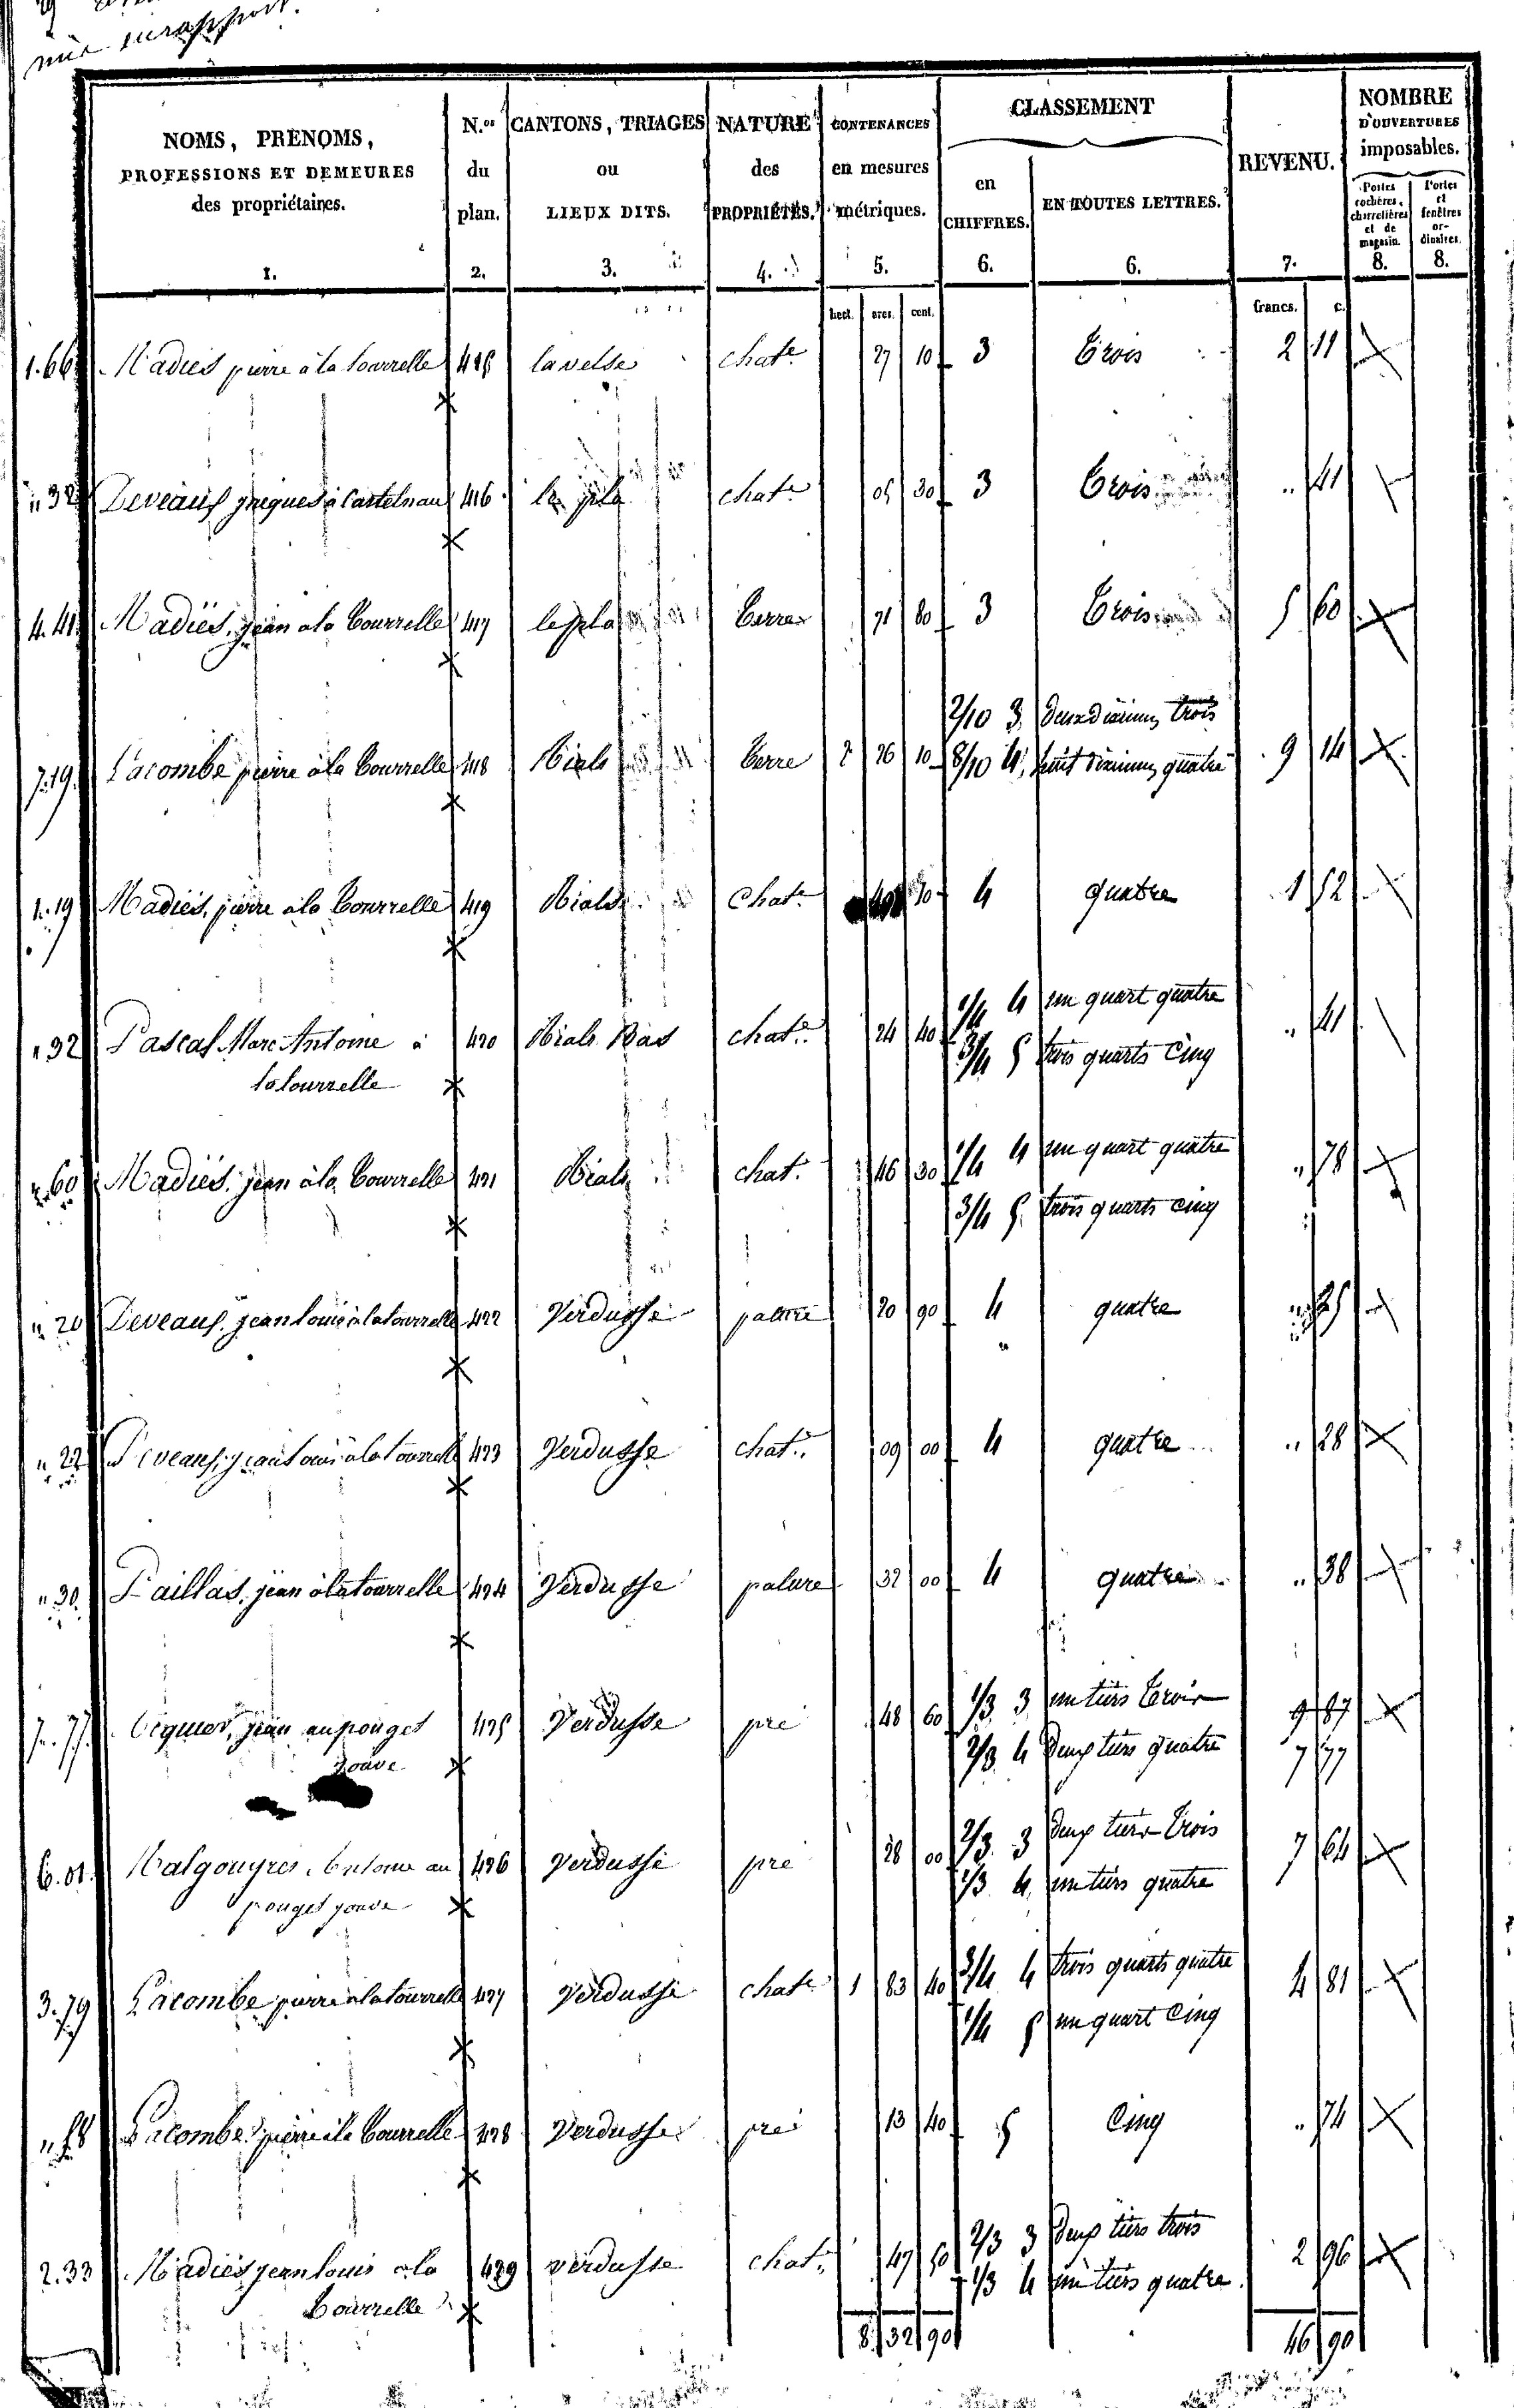 NOMS, PRENOMS,
PROFESSIONS ET DEMEURES
des propriétaires.
1.
N.os
du
plan.
2.
CANTONS, TRIAGES
ou
LIEUX DITS.
3.
NATURE
des
PROPRIÉTÉS.
4.
CONTENANCES
en mesures
métriques.
5.
CLASSEMENT
en
CHIFFRES.
6.
EN TOUTES LETTRES.
6.
REVENU.
7.
NOMBRE
D'OUVERTURES
imposables.
Portes
cochères,
charretières
et de
magasin.
8.
Portes
et
fenêtres
or-
dinaires.
8.
hect. ares. cent. francs. c.
1.66 Madiés pierre à la tourrelle 415 la velse chat.e 27 10 3 trois 2 11
" 32 Deveaux jacques à Castelnau 416 le pla chat.e 05 30 3 trois " 41
4.41 Madiés, jean a la tourrelle 417 le pla terre 71 80 3 trois 5 60
2/10 3 deux dixiemes trois
7.19 Lacombe pierre à la tourrelle 418 Rials terre 2 26 10 8/10 4 huit dixiemes quatre 9 14
1.19 Madiés, pierre à la tourrelle 419 Rials chat.e 70 4 quatre 1 52
1/4 4 un quart quatre
" 32 Pascal Marc Antoine à 420 Rials Bas chat.e 24 40 3/4 5 trois quarts cinq " 41
la tourrelle
" 60 Madiés, jean à la tourrelle 421 Rials chat. 46 30 1/4 4 un quart quatre " 78
3/4 5 trois quarts cinq
" 20 Deveaux, jean louis à la tourrelle 422 Verdusse pature 20 90 4 quatre " 25
" 22 Deveaux, jean louis à la tourrelle 423 Verdusse chat.e 09 00 4 quatre " 28
" 30 Paillas, jean à la tourrelle 424 Verdusse pature 32 00 4 quatre " 38
7.77 jean au pouget 425 Verdusse pré 48 60 1/3 3 un tiers trois 9 87
jouve 2/3 4 deux tiers quatre 7 77
6.01 Malgouyres, Antoine au 426 Verdusse pré 28 00 2/3 3 deux tiers trois 7 64
pouget jouve 1/3 4 un tiers quatre
3.79 Lacombe pierre a la tourrelle 427 Verdusse chat.e 1 83 40 3/4 4 trois quarts quatre 4 81
1/4 5 un quart cinq
" 58 Lacombe pierre à la tourrelle 428 Verdusse pré 13 40 5 cinq " 74
2.33 Madiés jean louis a la 429 verdusse chat.e 47 50 2/3 3 deux tiers trois 2 96
tourrelle 1/3 4 un tiers quatre
8 32 90 46 90